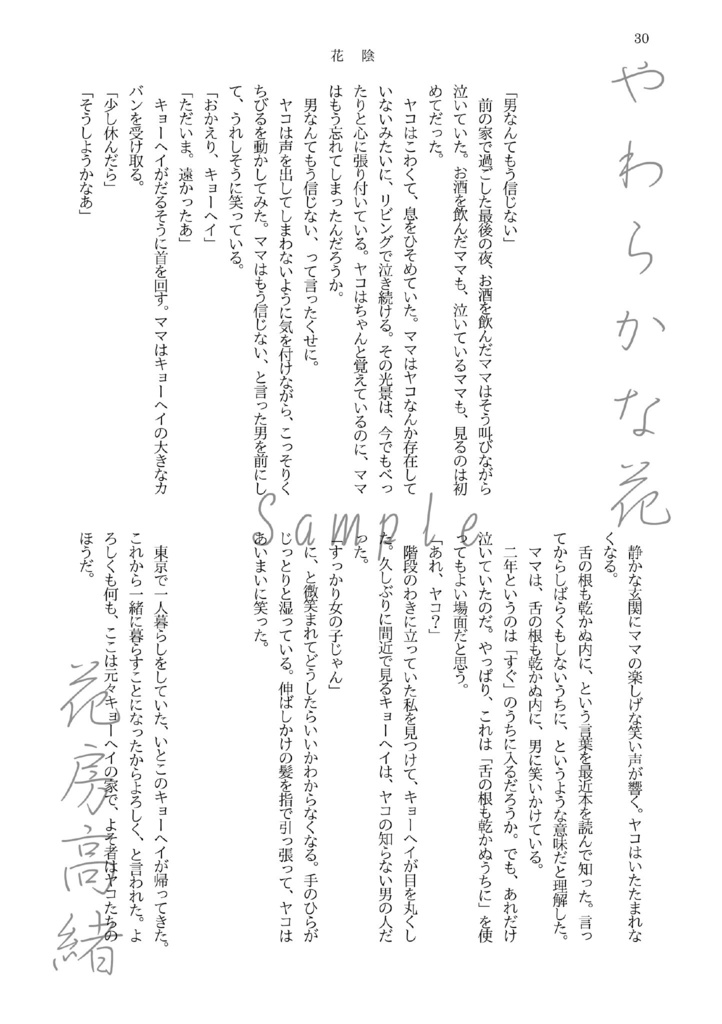 30
花陰
やわらかな花
「男なんてもう信じない」
前の家で過ごした最後の夜、お酒を飲んだママはそう叫びながら
泣いていた。お酒を飲んだママも、泣いているママも、見るのは初
めてだった。
ヤコはこわくて、息をひそめていた。ママはヤコなんか存在して
いないみたいに、リビングで泣き続ける。その光景は、今でもべっ
たりと心に張り付いている。ヤコはちゃんと覚えているのに、ママ
はもう忘れてしまったんだろうか。
男なんてもう信じない、って言ったくせに。
ヤコは声を出してしまわないように気を付けながら、こっそりく
ちびるを動かしてみた。ママはもう信じない、と言った男を前にし
て、うれしそうに笑っている。
「おかえり、キョーヘイ」
「ただいま。遠かったあ」
キョーヘイがだるそうに首を回す。ママはキョーヘイの大きなカ
バンを受け取る。
「少し休んだら」
「そうしようかなあ」
静かな玄関にママの楽しげな笑い声が響く。ヤコはいたたまれな
くなる。
舌の根も乾かぬ内に、という言葉を最近本を読んで知った。言っ
てからしばらくもしないうちに、というような意味だと理解した。
ママは、舌の根も乾かぬ内に、男に笑いかけている。
二年というのは「すぐ」のうちに入るだろうか。でも、あれだけ
泣いていたのだ。やっぱり、これは「舌の根も乾かぬうちに」を使
ってもよい場面だと思う。
「あれ、ヤコ？」
階段のわきに立っていた私を見つけて、キョーヘイが目を丸くし
た。久しぶりに間近で見るキョーヘイは、ヤコの知らない男の人だ
った。
「すっかり女の子じゃん」
に、と微笑まれてどうしたらいいかわからなくなる。手のひらが
じっとりと湿っている。伸ばしかけの髪を指で引っ張って、ヤコは
あいまいに笑った。
東京で一人暮らしをしていた、いとこのキョーヘイが帰ってきた。
これから一緒に暮らすことになったからよろしく、と言われた。よ
ろしくも何も、ここは元々キョーヘイの家で、よそ者はヤコたちの
ほうだ。
Sample
花房高緒